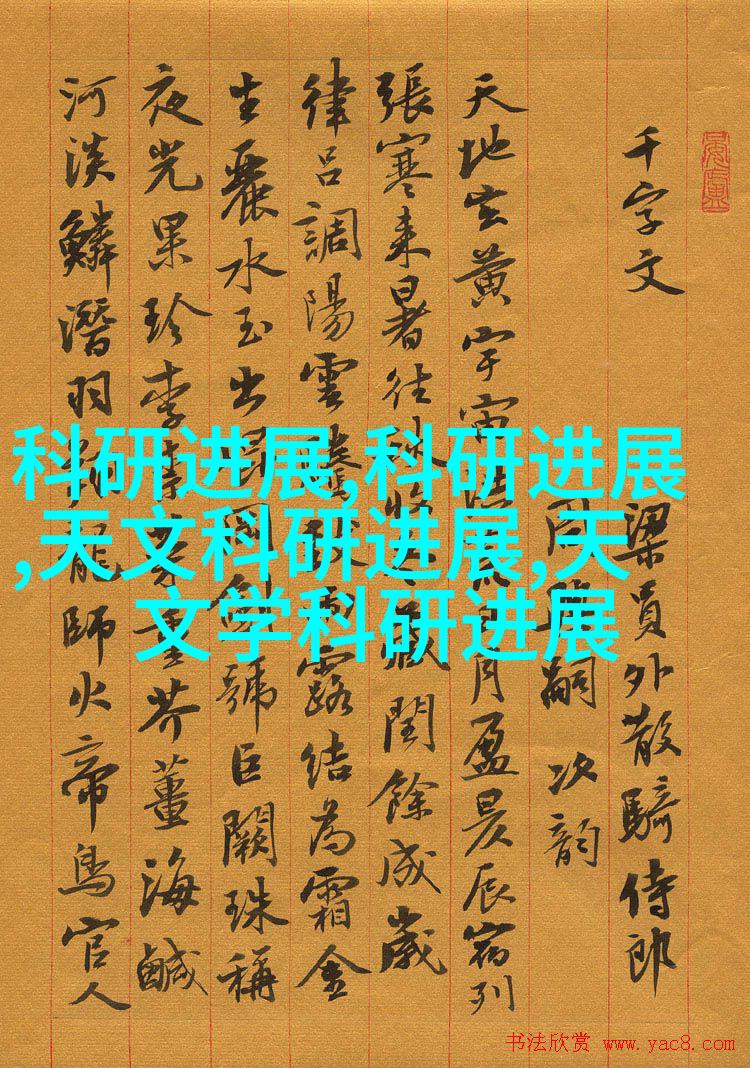 千字文 梁員外散騎侍郎
周興嗣 次韵
天地玄黄宇宙洪荒日月盈昃辰宿列
張寒来暑往秋收冬藏閏餘成歲
律吕調陽雲騰致雨露結為霜金
生麗水玉出崑岡劍號巨闕珠稱
夜光果珍李柰菜重芥薑海鹹
河淡鱗潛羽翔龍師火帝鳥官人
科研进展,科研进展
,天文科研进展,天
文学科研进展
书法欣赏 www.yac8.com